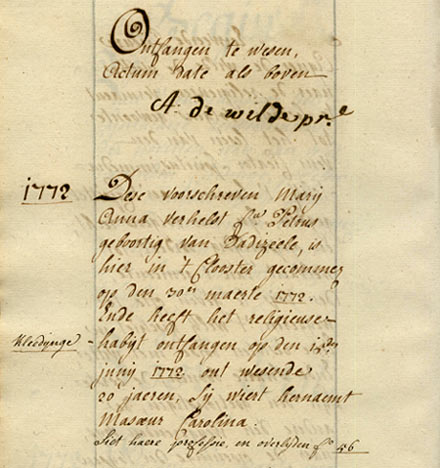 Ontfangen te wesen,
Actum date als boven
A: de wilde pr.e
1772
Dese voorschreven Marij
Anna verhelst f.a Petrus
geboortig van Dadizeele, is
hier in 't Clooster gecommen
op den 30en maerte 1772.
Ende heeft het religieuse
Kleedinge - habijt ontfangen op den
junij 1772 out wesende
20 jaeren, Sij wiert hernaemt
Masoeur Carolina.
Siet haere professie, en overlijden f.o 56